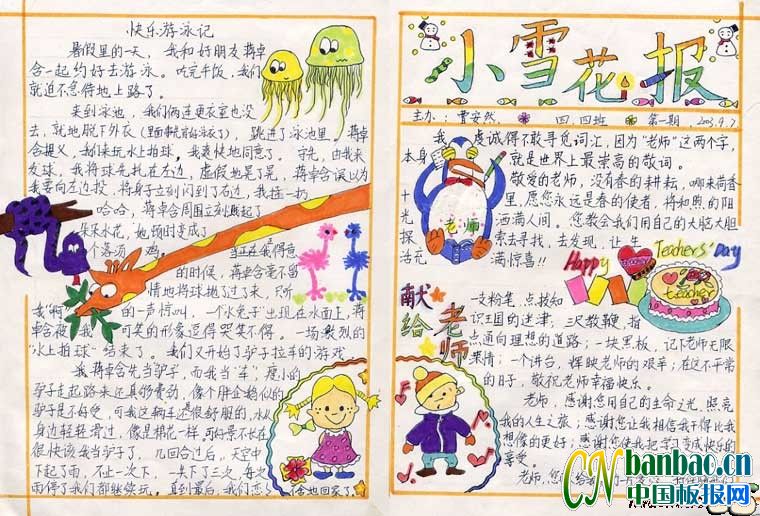 快乐游泳记
暑假里的一天,我和好朋友蒋卓
含一起约好去游泳。吃完午饭,我们
就迫不急待地上路了。
来到泳池,我们俩连更衣室也没
去,就地脱下外衣(里面
跳进了泳池里。蒋卓
含提义,我们来玩水上拍球,我爽快地同意了。守先,由我来
发球,我将球先扎在左边,虚假地晃了晃,蒋卓含误以为
我要向左边投,将身子立刻闪到了右边,我
哈哈,蒋卓含周围立刻
朵朵水花,她顿时变成了
个落汤鸡。当正在我得意
的时候,蒋卓含毫不留
情地将球抛了过了来,只听
我"啊
的一声惊叫,一个"水兔子"出现在水面上,蒋
卓含被我
可笑的形象逗得哭笑不得。一场激烈的
"水上拍球"结束了。我们又开始了驴子拉车的游戏
蒋卓含先当驴子,而我当"车",瘦小的
驴子走起路来还真够费劲,像个胖企鹅似的
驴子是不好受,可我这辆车还很舒服的,水从
身边轻轻滑过,像是棉花一样。可好景不长在
很快该我当驴子了,几回合过后,天空中
下起了雨,不止一次下,一共下了三次,每次
雨停了我们都继续玩。直到最后,我们恋
舍地回家了
小雪花报
主办:曹安然
四.四班
第一期
2003.9.7
我
虔诚得不敢寻觅词汇,因为"老师"这两个字,
本身
就是世界上最崇高的敬词。
敬爱的老师,没有春的耕耘,哪来荷香
十
里,愿您永远是春的使者,将和煦的阳
光
洒满人间。您教会我们用自己的大脑大胆
探
索去寻找,去发现,让生
活充
满惊喜!!
老师
Happy
Teachers' Day
teacher
献给老师
一支粉笔,点拨知
识王国的迷津;三尺教鞭,指
点通向理想的道路;一块黑板,记下老师无限
深情;一个讲台,辉映老师的艰辛;在这不平常
的日子,敬祝老师幸福快乐。
老师,感谢您用自己的生命之光,照亮
我的人生之旅;感谢您让我相信我干得比我
想像的更好;感谢您使我把学习变成快乐的
享受。
老师,您
CN banbao.cn
中国板报网